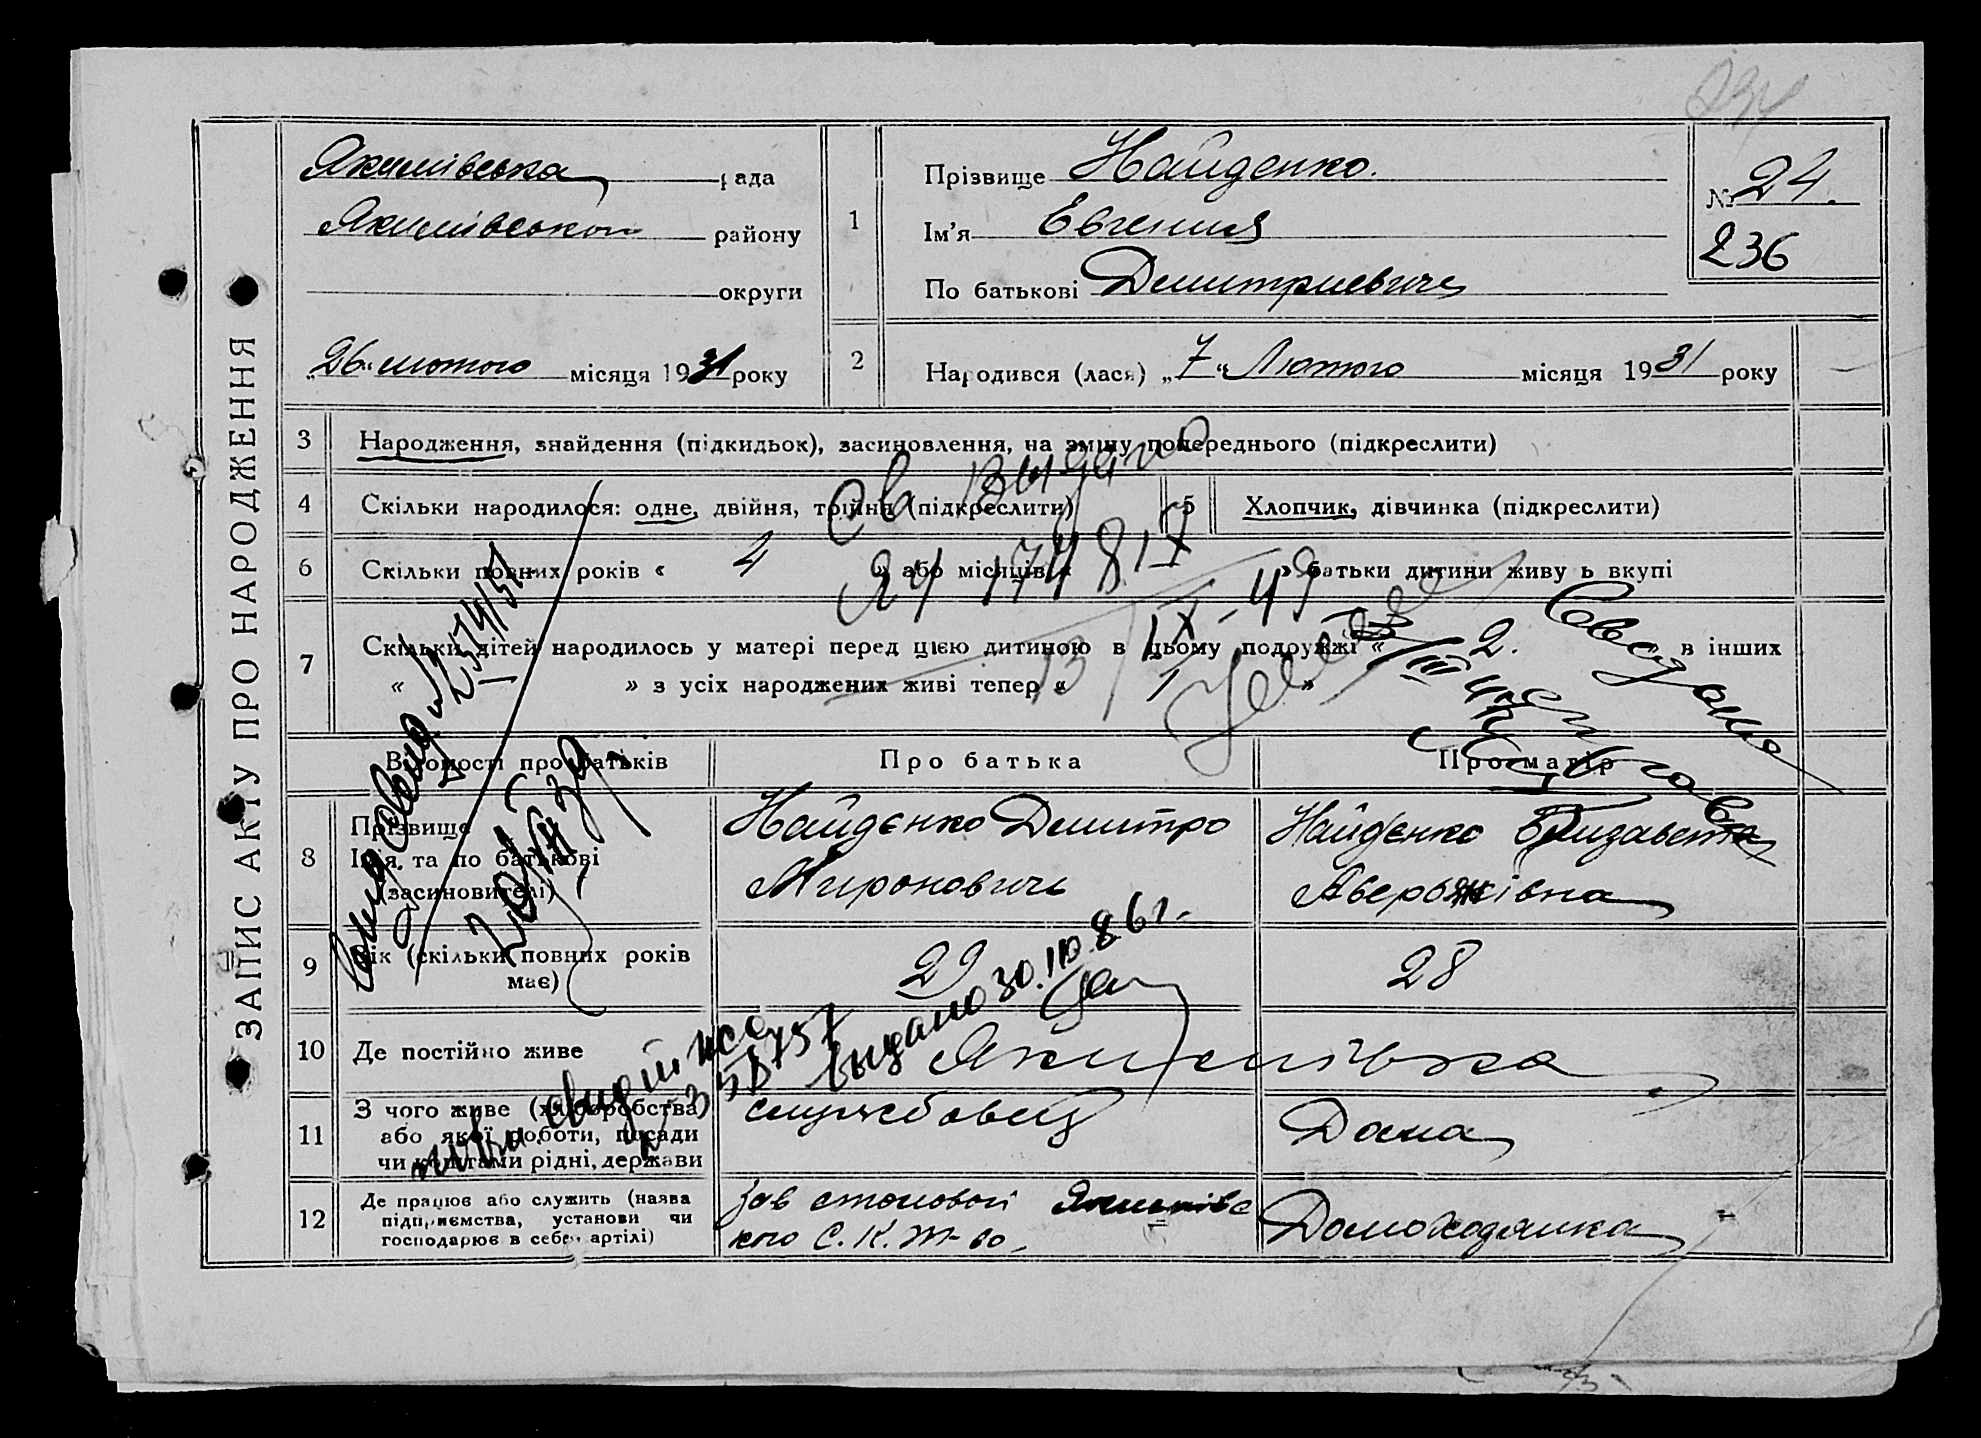 Якимівська рада
Якимівського району
округи
„26“ лютого місяця 1931 року
1
Прізвище Найденко.
Ім'я Евгений
По батькові Дмитриевичь
№ 24.
236
2
Народився (лася) „7“ Лютого місяця 1931 року
ЗАПИС АКТУ ПРО НАРОДЖЕННЯ
3 Народження, знайдення (підкидьок), засиновлення, на зміну попереднього (підкреслити)
4 Скільки народилося: одне, двійня, трійня (підкреслити)
5 Хлопчик, дівчинка (підкреслити)
6 Скільки повних років « 4 » або місяців « » батьки дитини живуть вкупі
7 Скільки дітей народилось у матері перед цією дитиною в цьому подружжі « 2. в інших
« » з усіх народжених живі тепер « 1 »
св выдано
ЯЧ 174817
13/IX-49
Відомості про батьків
Про батька
Про матір
8 Прізвище
Ім'я, та по батькові
(засиновителі)
Найдєнко Дмитро
Мироновичь
Найдєнко Елизавета
Аверьянівна
9 Вік (скільки повних років
має)
29
28
10 Де постійно живе
Якимівка
выдано 30.10.86г.
11 З чого живе (хліборобства
або якої роботи, посади
чи коштами рідні, держави
службовец
Дома
12 Де працює або служить (назва
підприємства, установи чи
господарює в себе, артілі)
Зав столовой Якимівс
кого С.К.Т-во.
Домохозяйка